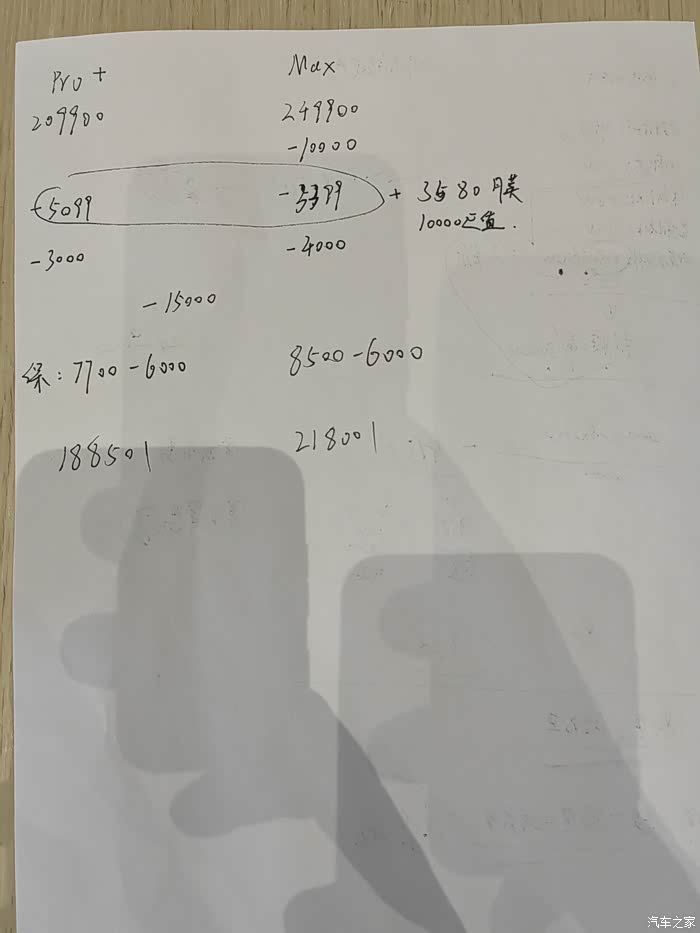 Pro+ Max
209900 249900
-10000
-5099 -5399 + 3580 膜
10000
-3000 -4000
-15000
保:7700-6000 8500-6000
188501 218001
汽车之家